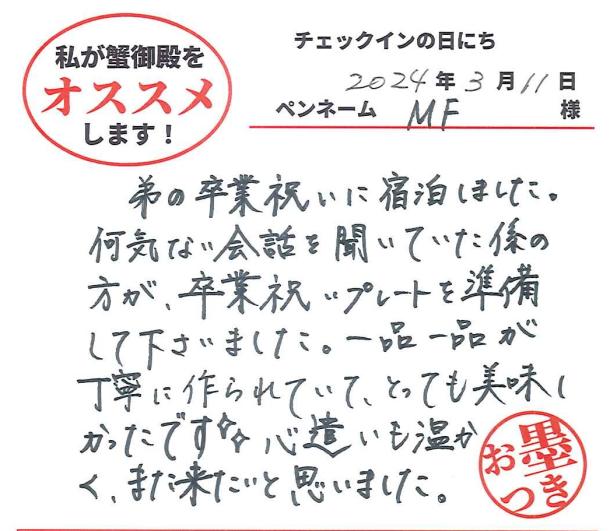 私が蟹御殿を
オススメ
します！
チェックインの日にち
2024年3月11日
ペンネーム MF 様
弟の卒業祝いに宿泊しました。
何気ない会話を聞いていた係の
方が、卒業祝いプレートを準備
して下さいました。一品一品が
丁寧に作られていて、とっても美味し
かったです✨心遣いも温か
く、また来たいと思いました。
お墨
つき